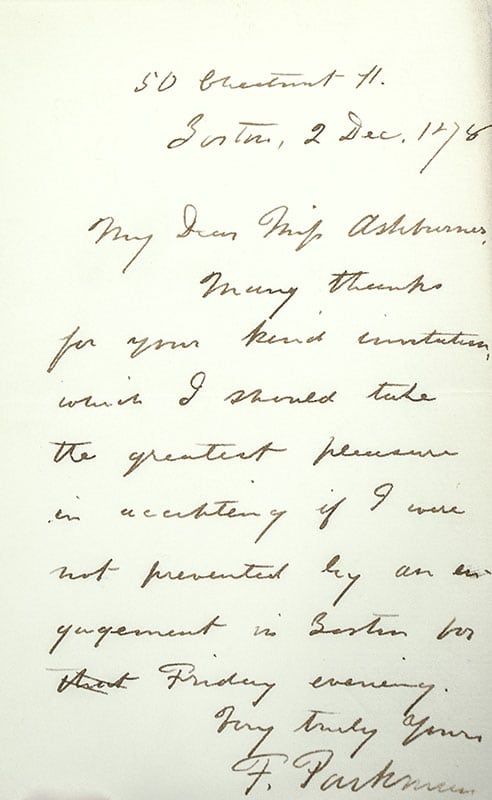 50 Chestnut St.
Boston, 2 Dec. 1878
My Dear Miss Ashburner,
Many thanks
for your kind invitation,
which I should take
the greatest pleasure
in accepting if I were
not prevented by an en-
gagement in Boston for
that Friday evening.
Very truly Yours
F. Parkman